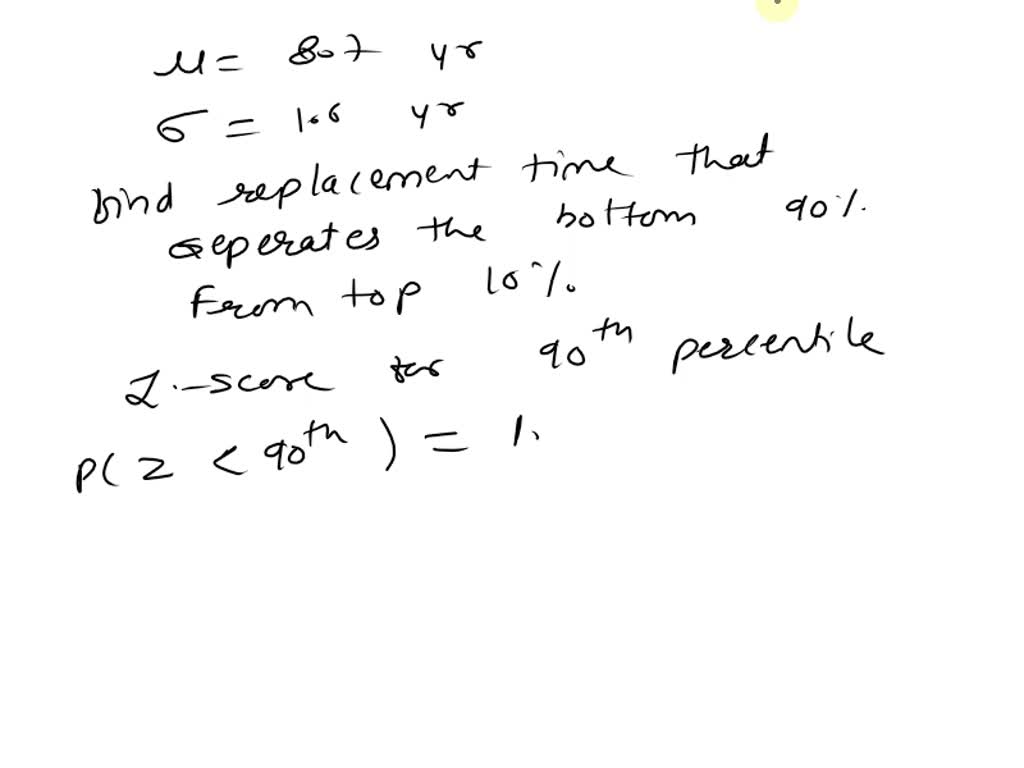 μ = 8.7 yr
σ = 1.6 yr
find replacement time that
seperates the bottom 90%.
From top 10%.
Z-score for 90th percentile
P(Z < 90th) = 1.